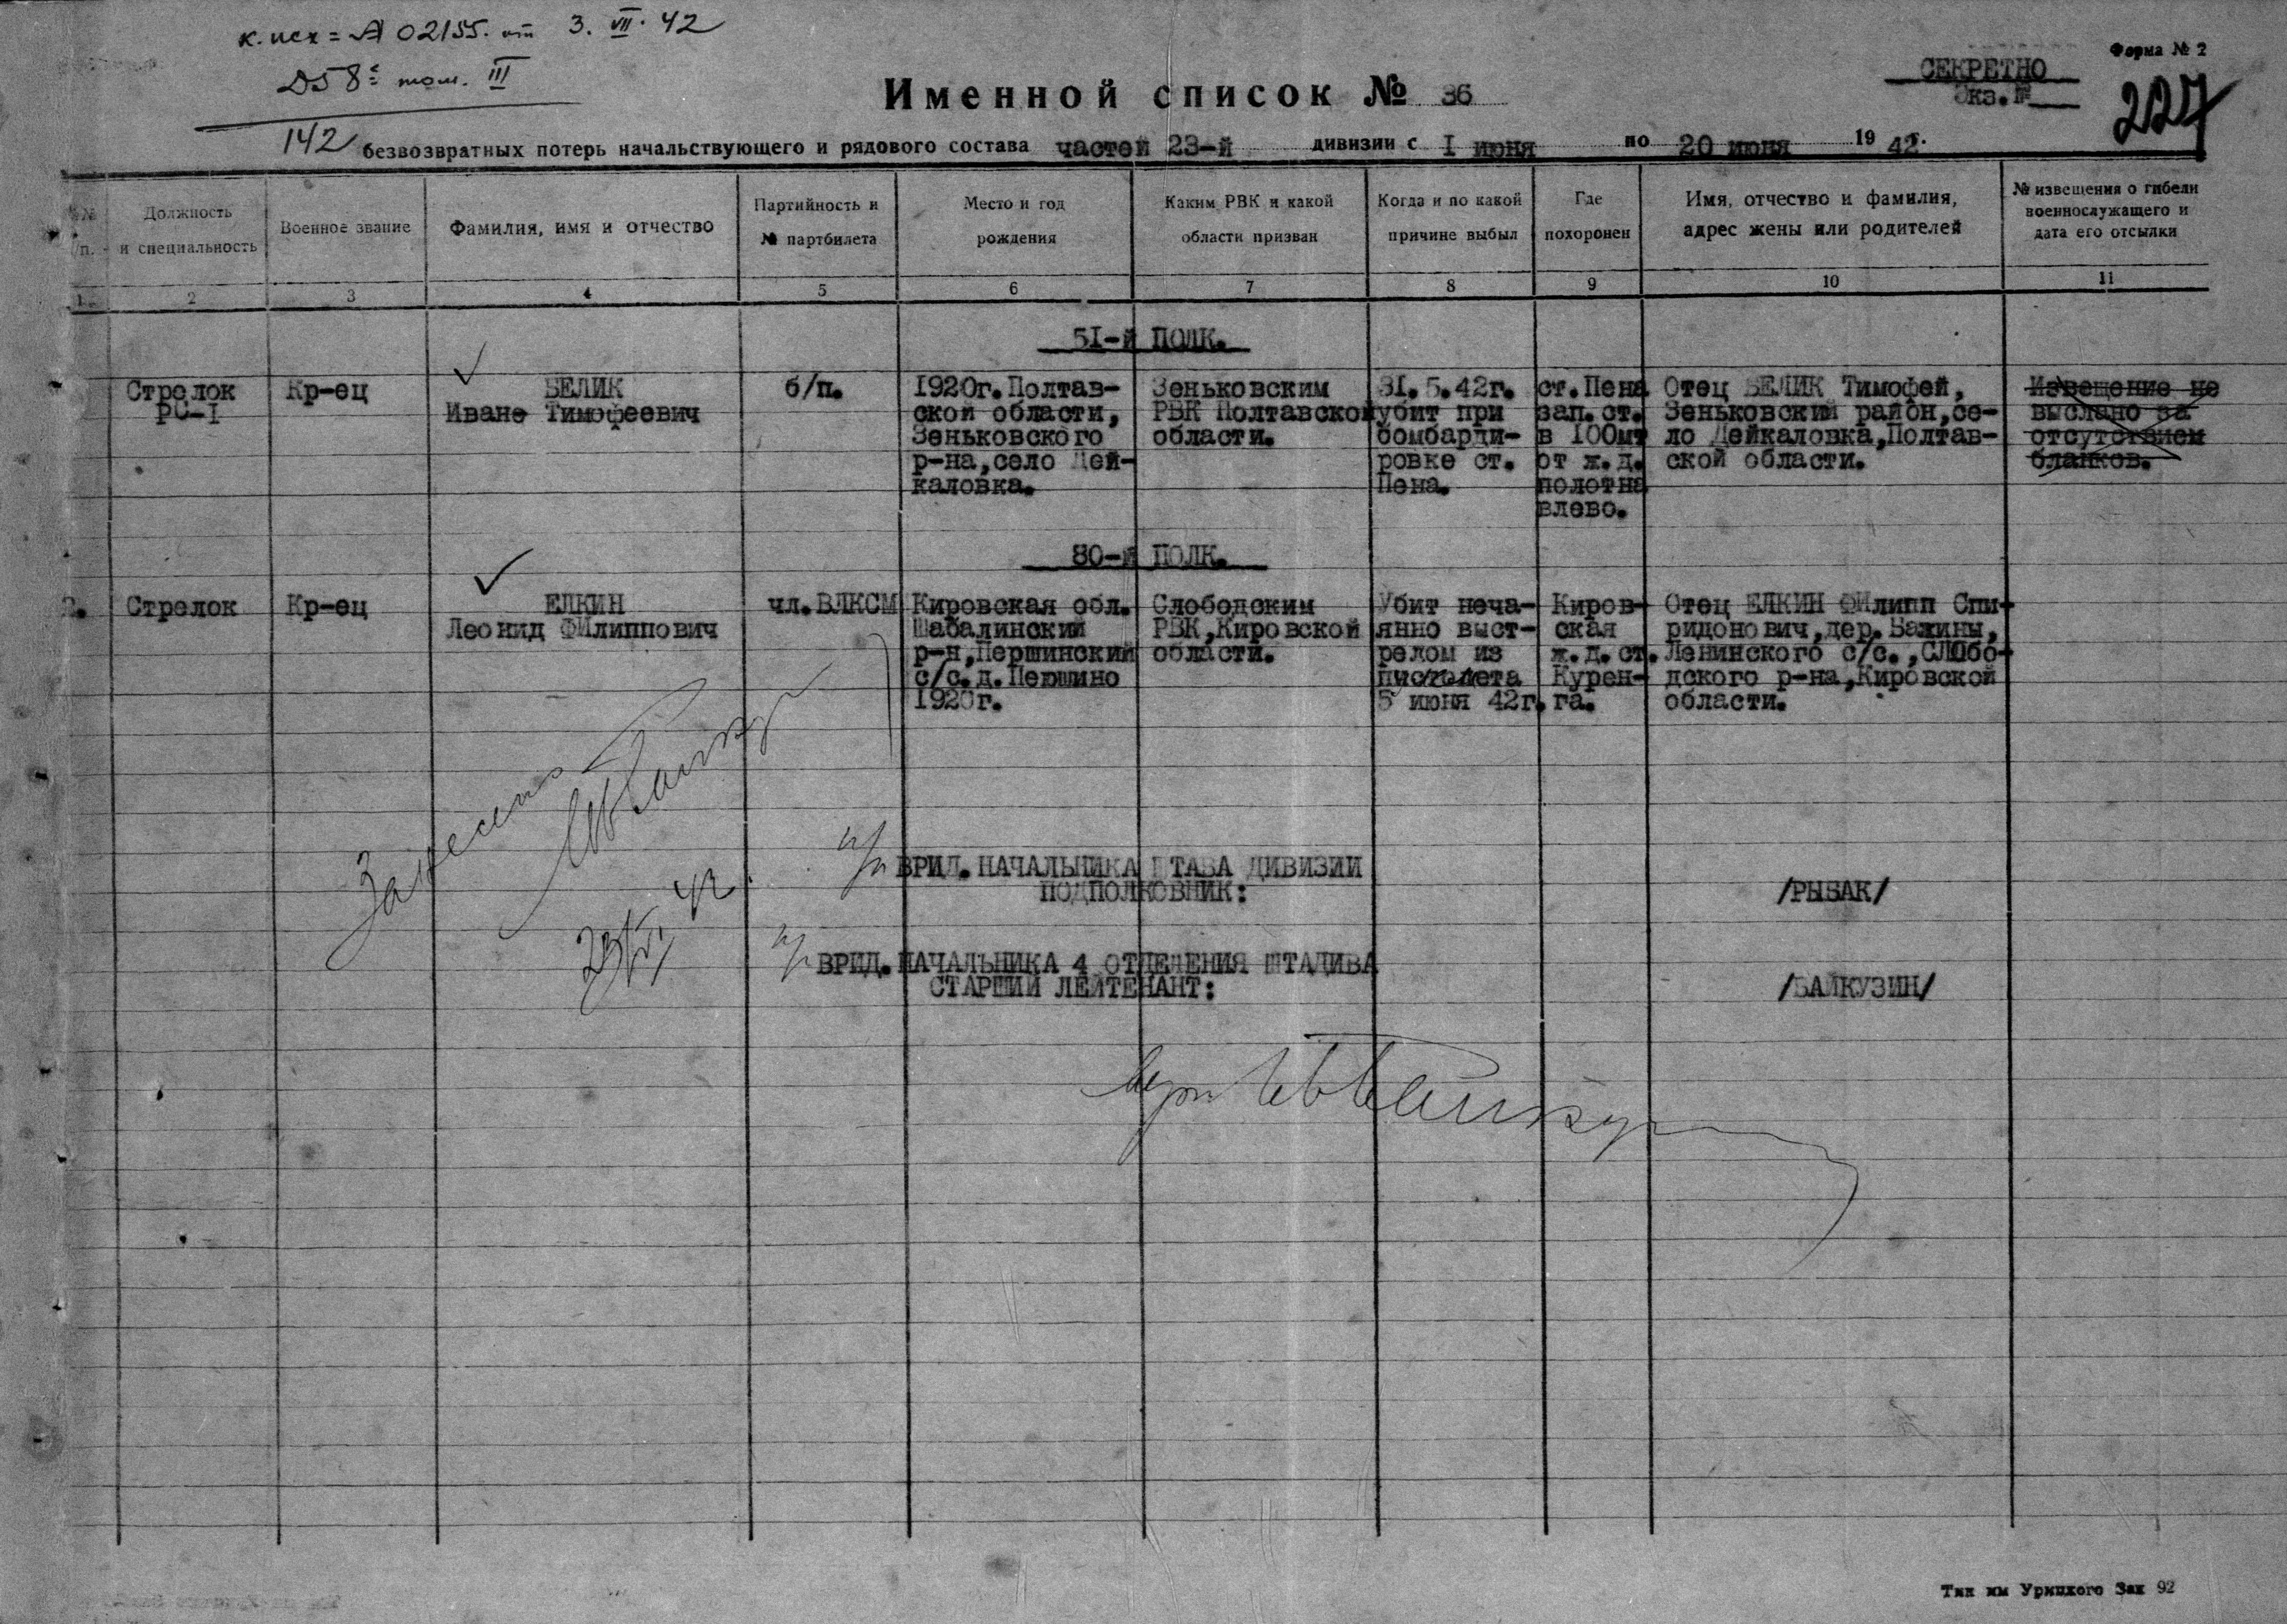 к. исх = А 02155. от 3. VII. 42
D58с том. III
142
Форма № 2
СЕКРЕТНО
Экз.№
227
Именной список № 36
безвозвратных потерь начальствующего и рядового состава частей 23-й дивизии с I июня по 20 июня 1942 г.
№ п. Должность и специальность Военное звание Фамилия, имя и отчество Партийность и № партбилета Место и год рождения Каким РВК и какой области призван Когда и по какой причине выбыл Где похоронен Имя, отчество и фамилия, адрес жены или родителей № извещения о гибели военнослужащего и дата его отсылки
1 2 3 4 5 6 7 8 9 10 11
51-й ПОЛК.
Стрелок Кр-ец БЕЛИК б/п. 1920г.Полтав- Зеньковским 31.5.42г. ст.Пена Отец БЕЛИК Тимофей, Извещение не
РС-I Иване Тимофеевич ской области, РВК Полтавской убит при зап.ст. Зеньковский район,се- выслано за
Зеньковского области. бомбарди- в 100мт ло Дейкаловка,Полтав- отсутствием
р-на,село Дей- ровке ст. от ж.д. ской области. бланков.
каловка. Пена. полотна
влево.
80-й ПОЛК.
2. Стрелок Кр-ец ЕЛКИН чл.ВЛКСМ Кировская обл. Слободским Убит неча- Киров- Отец ЕЛКИН ФИлипп Спи-
Леонид ФИлиппович Шабалинский РВК,Кировской янно выст- ская ридонович,дер.Бажины,
р-н,Першинский области. релом из ж.д.ст. Ленинского с/с.,СЛОбо-
с/с.д.Першино пистолета Курен- дского р-на,Кировской
1920г. 5 июня 42г. га. области.
Занесено
23/VI 42
п/п ВРИД.НАЧАЛЬНИКА ШТАБА ДИВИЗИИ
ПОДПОЛКОВНИК: /РЫБАК/
п/п ВРИД.НАЧАЛЬНИКА 4 ОТДЕЛЕНИЯ ШТАДИВА
СТАРШИЙ ЛЕЙТЕНАНТ: /БАЙКУЗИН/
Тип им Урицкого Зак 92